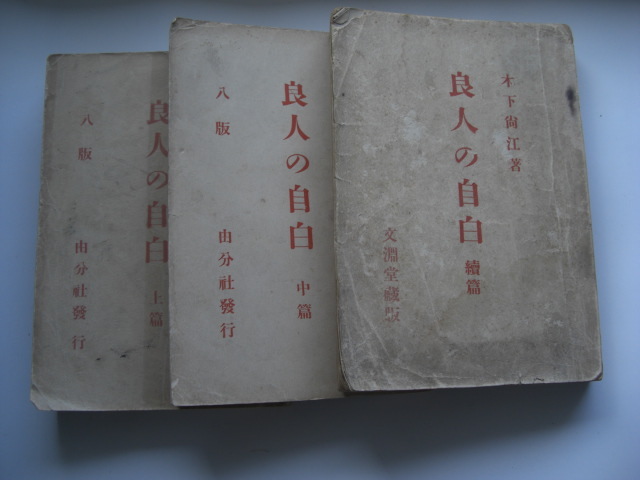 木下尙江著
良人の自白 續篇
文淵堂藏版
良人の自白 中篇
八版
由分社發行
良人の自白 上篇
八版
由分社發行